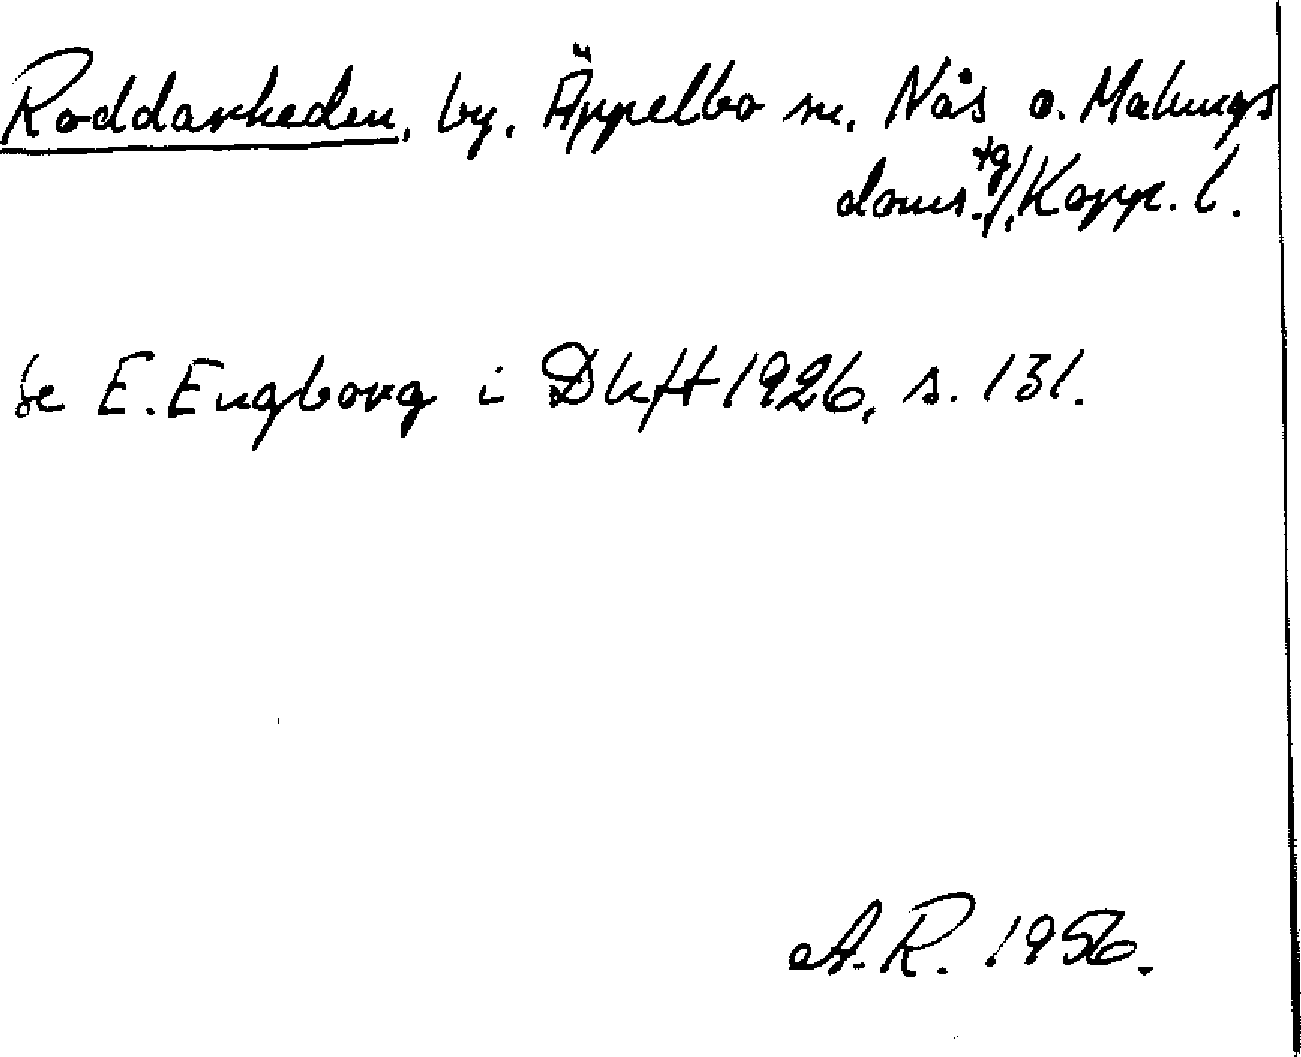 Roddarheden, by. Äppelbo sn. Nås o. Malungs
doms.tg/, Kopp. l.
Se E. Engborg i Dhft 1926, s. 131.
A.R. 1956.